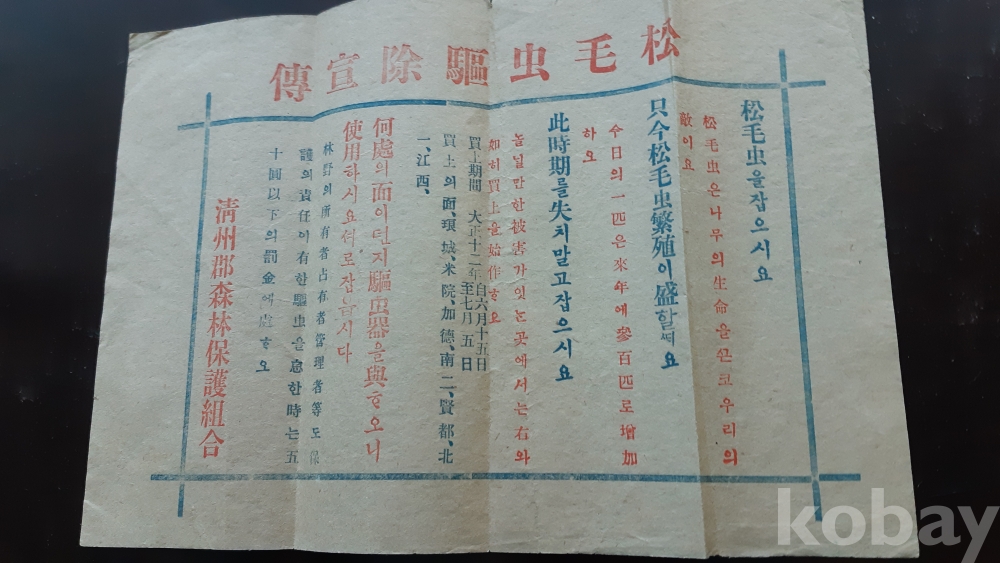 松毛虫驅除宣傳
松毛虫을잡으시요
松毛虫은나무의生命을쓴코우리의
敵이요
只今松毛虫繁殖이盛할때요
今日의一匹은來年에參百匹로增加
하오
此時期를失치말고잡으시요
놀널만한被害가잇는곳에서는右와
如히買上을始作하오
買上期間 大正十二年自六月十五日至七月五日
買上의面、琅城、米院、加德、南二、賢都、北
一、江西、
何處의面이던지驅虫器를與하오니
使用하시요서로잡읍시다
林野의所有者占有者管理者等도保
護의責任이有한驅虫을怠한時는五
十圓以下의罰金에處하오
淸州郡森林保護組合
kobay